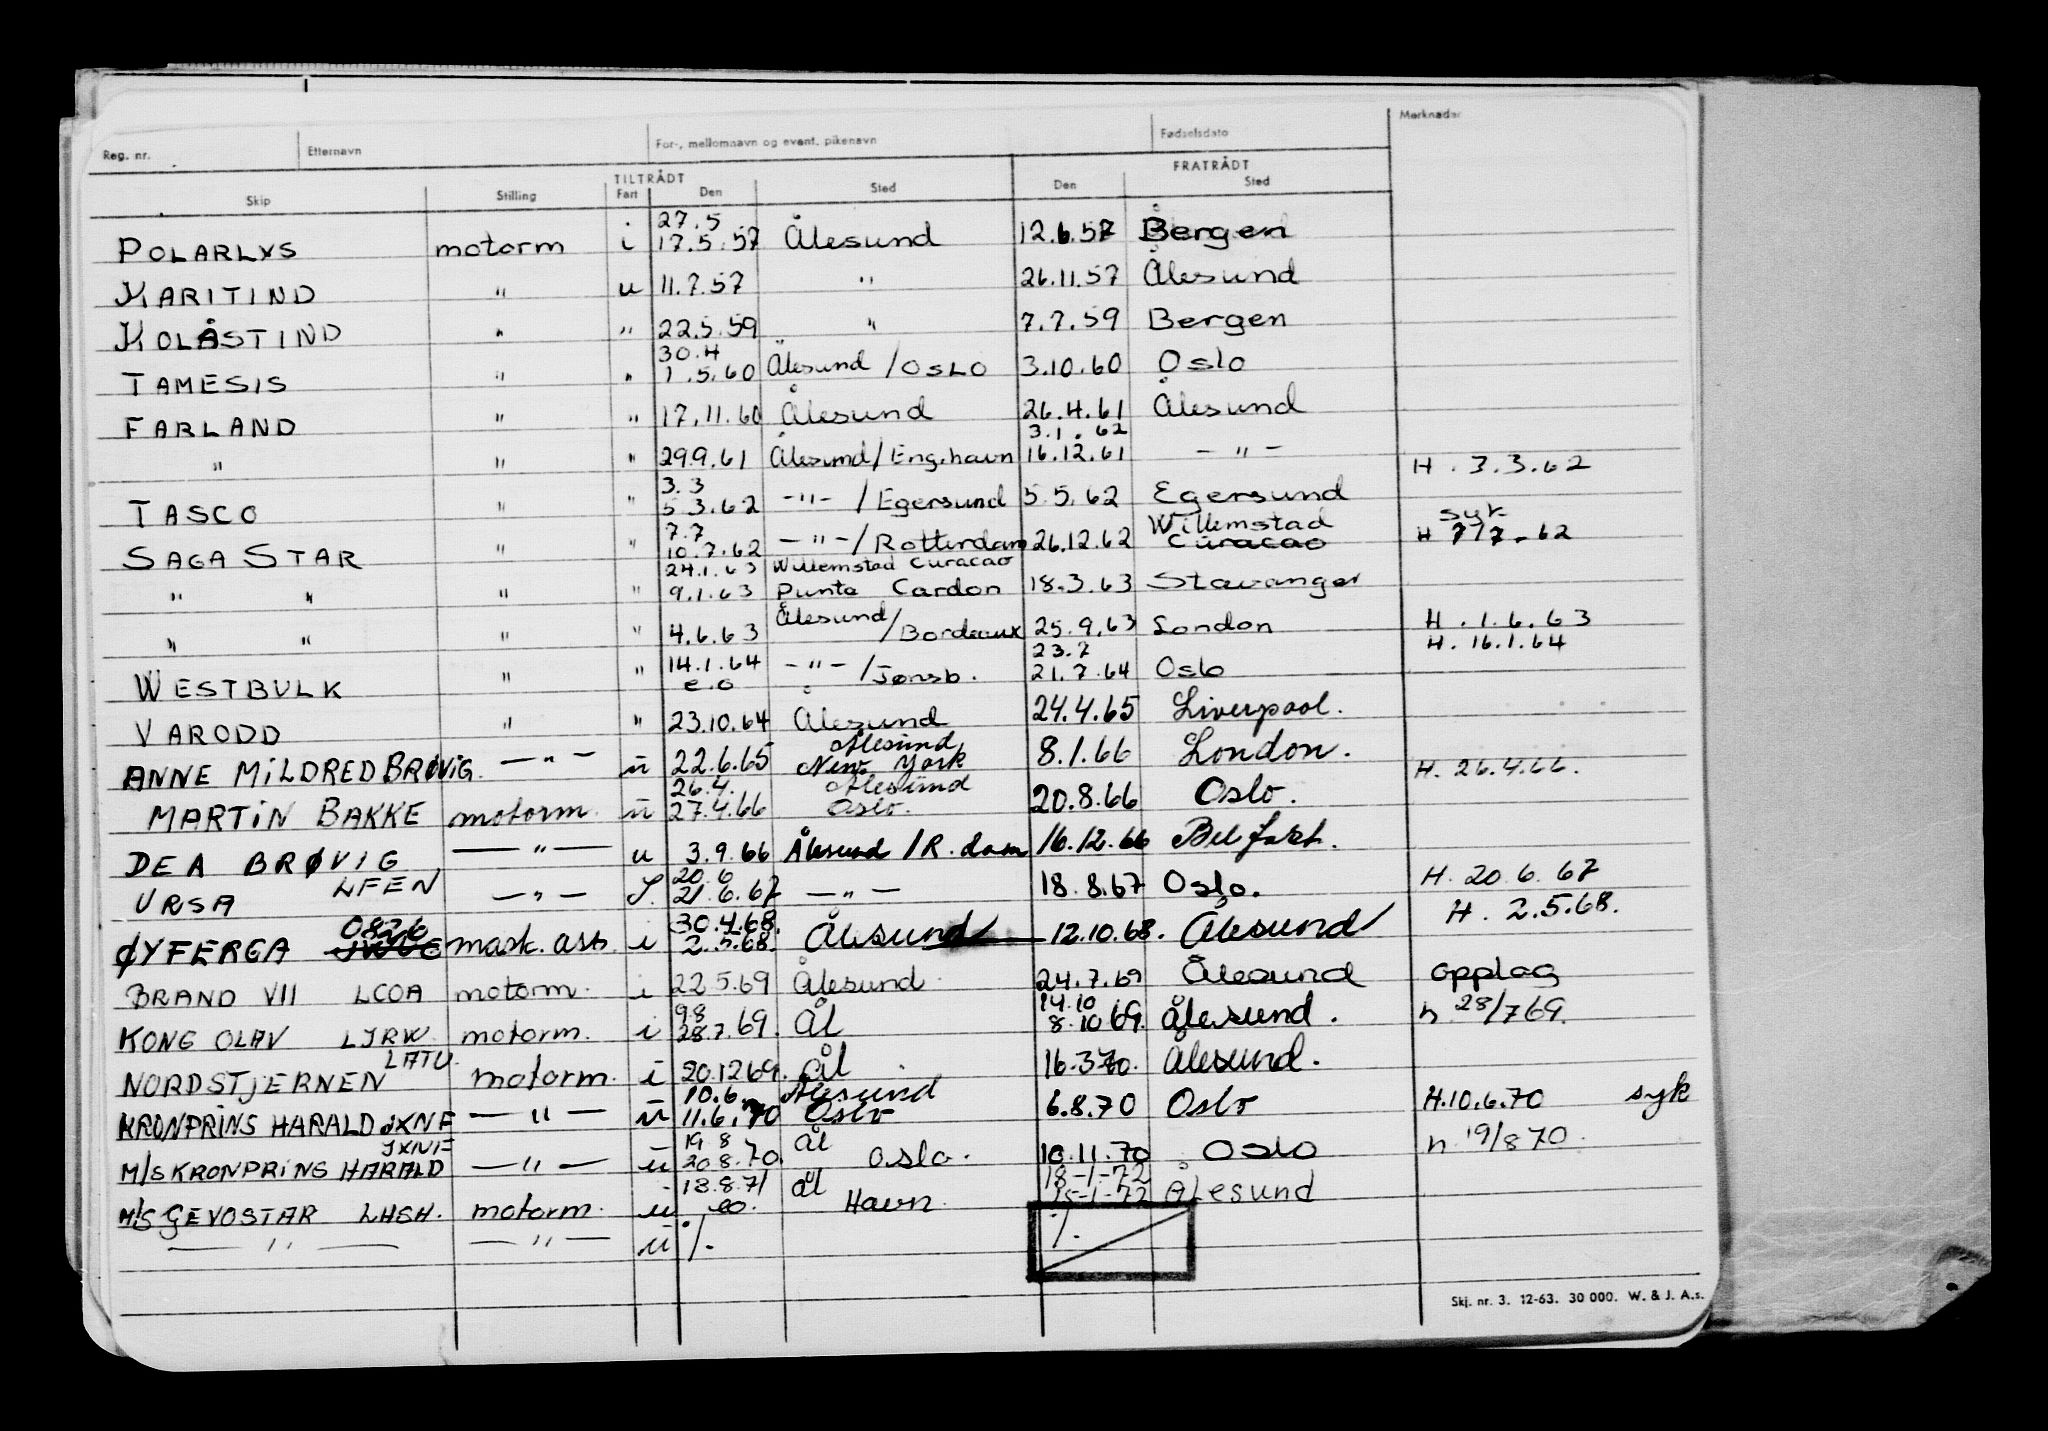 Reg. nr. Etternavn For-, mellomnavn og event. pikenavn Fødselsdato Merknader
TILTRÅDT FRATRÅDT
Skip Stilling Fart Den Sted Den Sted
27.5
POLARLYS motorm i 17.5.57 Ålesund 12.6.57 Bergen
KARITIND " u 11.7.57 " 26.11.57 Ålesund
KOLÅSTIND " " 22.5.59 " 7.7.59 Bergen
30.4
TAMESIS " " 1.5.60 Ålesund / OSLO 3.10.60 Oslo
FARLAND " " 17.11.60 Ålesund 26.4.61 Ålesund
3.1.62
" " " 29.9.61 Ålesund / Eng.havn 16.12.61 - " - H. 3.3.62
3.3
TASCO " " 5 3.62 - " - / Egersund 5.5.62 Egersund
7.7 Willemstad syk
SAGA STAR " " 10.7.62 - " - / Rotterdam 26.12.62 Curacao H 7/7-62
24.1.63 Willemstad Curacao
" " " " 9.1.63 Punta Cardon 18.3.63 Stavanger
Ålesund
" " " " 4.6.63 / Bordeaux 25.9.63 London H. 1.6.63
14.1.64 23.7 H. 16.1.64
WESTBULK " " e.o - " - / Tønsb. 21.7.64 Oslo
VARODD " " 23.10.64 Ålesund 24.4.65 Liverpool.
Ålesund
ANNE MILDRED BRØVIG - " - u 22.6.65 New York 8.1.66 London. H. 26.4.66.
26.4. Ålesund
MARTIN BAKKE motorm. u 27.4.66 Oslo. 20.8.66 Oslo.
DEA BRØVIG - " - u 3.9.66 Ålesund / R.dam 16.12.66 Belfast.
20.6
URSA LFEN - " - S. 21.6.67 - " - 18.8.67 Oslo. H. 20.6.67
0826 30.4.68. H. 2.5.68.
ØYFERGA mask. ass. i 2.5.68. Ålesund 12.10.68. Ålesund
BRAND VII LCOA motorm. i 22.5.69 Ålesund 24.7.69 Ålesund opplag
9.8 14.10
KONG OLAV LJRW motorm. i 28.7.69. Ål 8.10 69. Ålesund. h. 28/7 69.
NORDSTJERNEN LATU. motorm. i 20.12 69. Ål 16.3 70. Ålesund.
10.6. Ålesund
KRONPRINS HARALD JXNF - " - u 11.6.70 Oslo 6.8.70 Oslo H.10.6.70 syk
JXNF 19 8 Ål
M/S KRONPRINS HARALD - " - u 20.8.70. Oslo. 10.11.70 Oslo h. 19/8 70.
13.8.71 Ål 18-1-72
M/S GEVOSTAR LHGH. motorm. u eo. Havn. 15-1-72 Ålesund
- " - - " - u /. /.
Skj. nr. 3. 12-63. 30 000. W. & J. A.s.